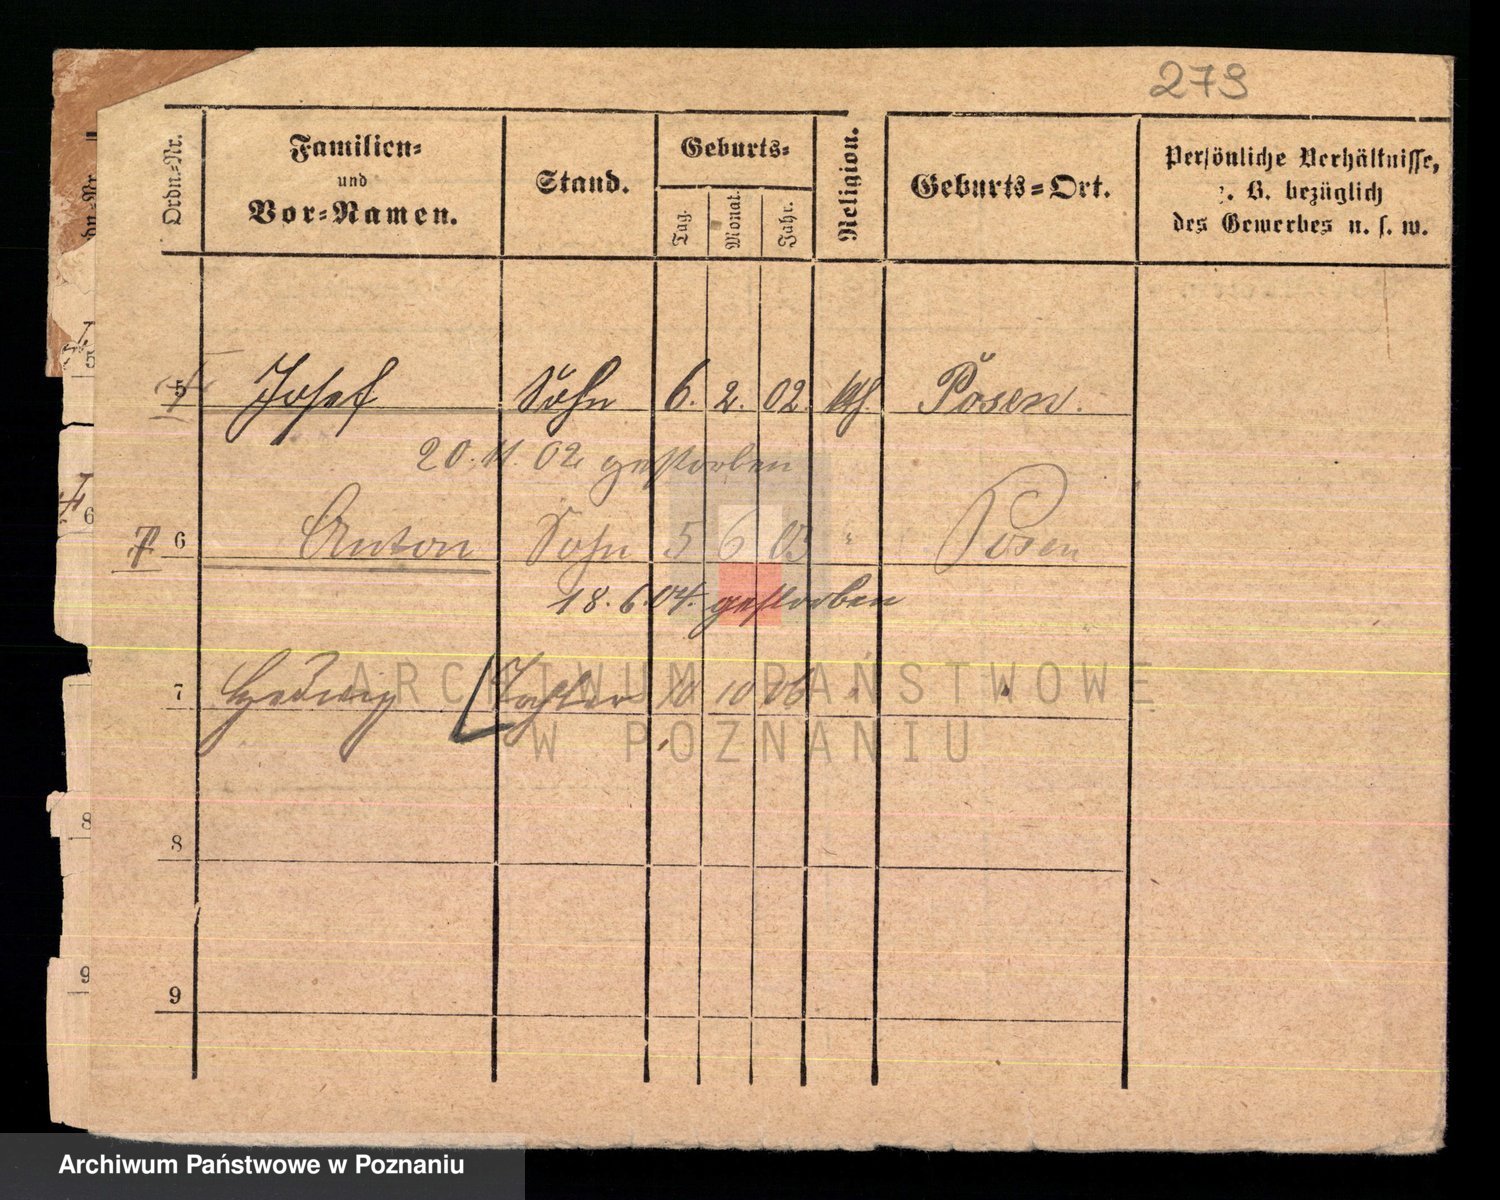 279
Ordn.-Nr.
Familien-
und
Vor-Namen.
Stand.
Geburts-
Tag.
Monat.
Jahr.
Religion.
Geburts-Ort.
Persönliche Verhältnisse,
z. B. bezüglich
des Gewerbes u. s. w.
5 Josef Sohn 6. 2. 02 kth. Posen.
20. 11. 02 gestorben
6 Anton Sohn 5 6 03 " Posen
18. 6. 04. gestorben
7 Hedwig Tochter 10 10 06 " "
8
9
ARCHIWUM PAŃSTWOWE
W POZNANIU
Archiwum Państwowe w Poznaniu